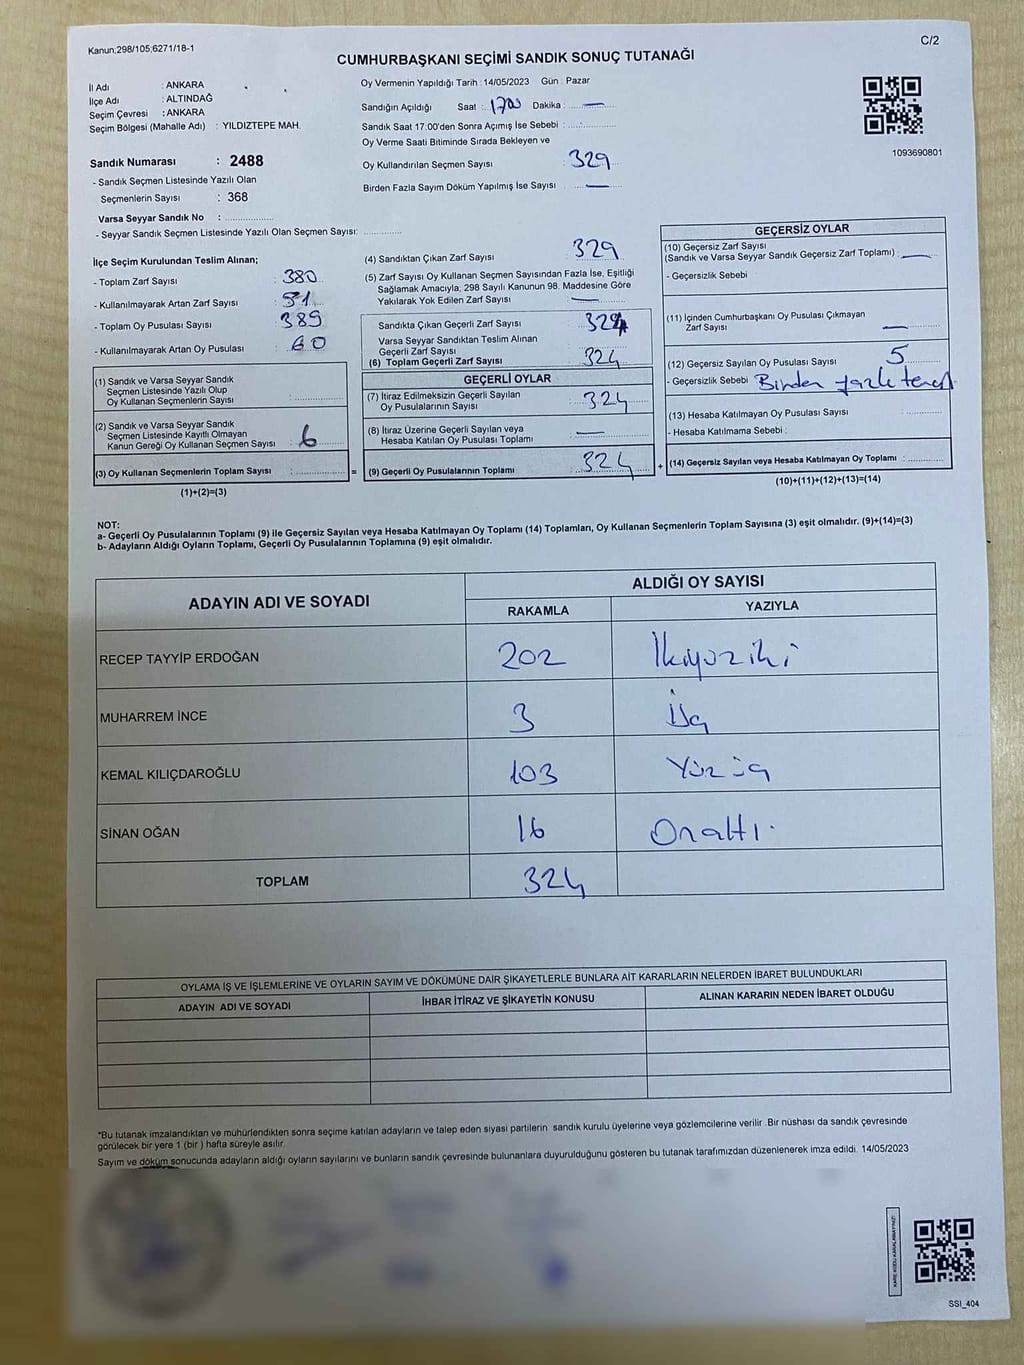 Kanun;298/105;6271/18-1
C/2
CUMHURBAŞKANI SEÇİMİ SANDIK SONUÇ TUTANAĞI
İl Adı : ANKARA
İlçe Adı : ALTINDAĞ
Seçim Çevresi : ANKARA
Seçim Bölgesi (Mahalle Adı) : YILDIZTEPE MAH.
Oy Vermenin Yapıldığı Tarih : 14/05/2023 Gün : Pazar
Sandığın Açıldığı Saat : 1700 Dakika : —
Sandık Saat 17.00'den Sonra Açımış İse Sebebi :
Oy Verme Saati Bitiminde Sırada Bekleyen ve
Oy Kullandırılan Seçmen Sayısı : 329
Birden Fazla Sayım Döküm Yapılmış İse Sayısı : —
1093690801
Sandık Numarası : 2488
- Sandık Seçmen Listesinde Yazılı Olan
Seçmenlerin Sayısı : 368
Varsa Seyyar Sandık No :
- Seyyar Sandık Seçmen Listesinde Yazılı Olan Seçmen Sayısı:
İlçe Seçim Kurulundan Teslim Alınan;
- Toplam Zarf Sayısı : 380
- Kullanılmayarak Artan Zarf Sayısı : 51
- Toplam Oy Pusulası Sayısı : 389
- Kullanılmayarak Artan Oy Pusulası : 60
(1) Sandık ve Varsa Seyyar Sandık
Seçmen Listesinde Yazılı Olup
Oy Kullanan Seçmenlerin Sayısı :
(2) Sandık ve Varsa Seyyar Sandık
Seçmen Listesinde Kayıtlı Olmayan
Kanun Gereği Oy Kullanan Seçmen Sayısı : 6
(3) Oy Kullanan Seçmenlerin Toplam Sayısı : =
(1)+(2)=(3)
(4) Sandıktan Çıkan Zarf Sayısı : 329
(5) Zarf Sayısı Oy Kullanan Seçmen Sayısından Fazla İse, Eşitliği
Sağlamak Amacıyla; 298 Sayılı Kanunun 98. Maddesine Göre
Yakılarak Yok Edilen Zarf Sayısı : —
Sandıkta Çıkan Geçerli Zarf Sayısı : 324
Varsa Seyyar Sandıktan Teslim Alınan
Geçerli Zarf Sayısı
(6) Toplam Geçerli Zarf Sayısı : 324
GEÇERLİ OYLAR
(7) İtiraz Edilmeksizin Geçerli Sayılan
Oy Pusulalarının Sayısı : 324
(8) İtiraz Üzerine Geçerli Sayılan veya
Hesaba Katılan Oy Pusulası Toplamı : —
(9) Geçerli Oy Pusulalarının Toplamı : 324 +
GEÇERSİZ OYLAR
(10) Geçersiz Zarf Sayısı
(Sandık ve Varsa Seyyar Sandık Geçersiz Zarf Toplamı) : —
- Geçersizlik Sebebi
(11) İçinden Cumhurbaşkanı Oy Pusulası Çıkmayan
Zarf Sayısı : —
(12) Geçersiz Sayılan Oy Pusulası Sayısı : 5
- Geçersizlik Sebebi Birden fazla
(13) Hesaba Katılmayan Oy Pusulası Sayısı :
- Hesaba Katılmama Sebebi :
(14) Geçersiz Sayılan veya Hesaba Katılmayan Oy Toplamı :
(10)+(11)+(12)+(13)=(14)
NOT:
a- Geçerli Oy Pusulalarının Toplamı (9) ile Geçersiz Sayılan veya Hesaba Katılmayan Oy Toplamı (14) Toplamları, Oy Kullanan Seçmenlerin Toplam Sayısına (3) eşit olmalıdır. (9)+(14)=(3)
b- Adayların Aldığı Oyların Toplamı, Geçerli Oy Pusulalarının Toplamına (9) eşit olmalıdır.
ADAYIN ADI VE SOYADI
ALDIĞI OY SAYISI
RAKAMLA YAZIYLA
RECEP TAYYİP ERDOĞAN 202 İkiyüziki
MUHARREM İNCE 3 Üç
KEMAL KILIÇDAROĞLU 103 Yüz üç
SİNAN OĞAN 16 Onaltı
TOPLAM 324
OYLAMA İŞ VE İŞLEMLERİNE VE OYLARIN SAYIM VE DÖKÜMÜNE DAİR ŞİKAYETLERLE BUNLARA AİT KARARLARIN NELERDEN İBARET BULUNDUKLARI
ADAYIN ADI VE SOYADI İHBAR İTİRAZ VE ŞİKAYETİN KONUSU ALINAN KARARIN NEDEN İBARET OLDUĞU
*Bu tutanak imzalandıktan ve mühürlendikten sonra seçime katılan adayların ve talep eden siyasi partilerin sandık kurulu üyelerine veya gözlemcilerine verilir. Bir nüshası da sandık çevresinde
görülecek bir yere 1 (bir) hafta süreyle asılır.
Sayım ve döküm sonucunda adayların aldığı oyların sayılarını ve bunların sandık çevresinde bulunanlara duyurulduğunu gösteren bu tutanak tarafımızdan düzenlenerek imza edildi. 14/05/2023
KARE KODU KARALAMAYINIZ!
SSI_404